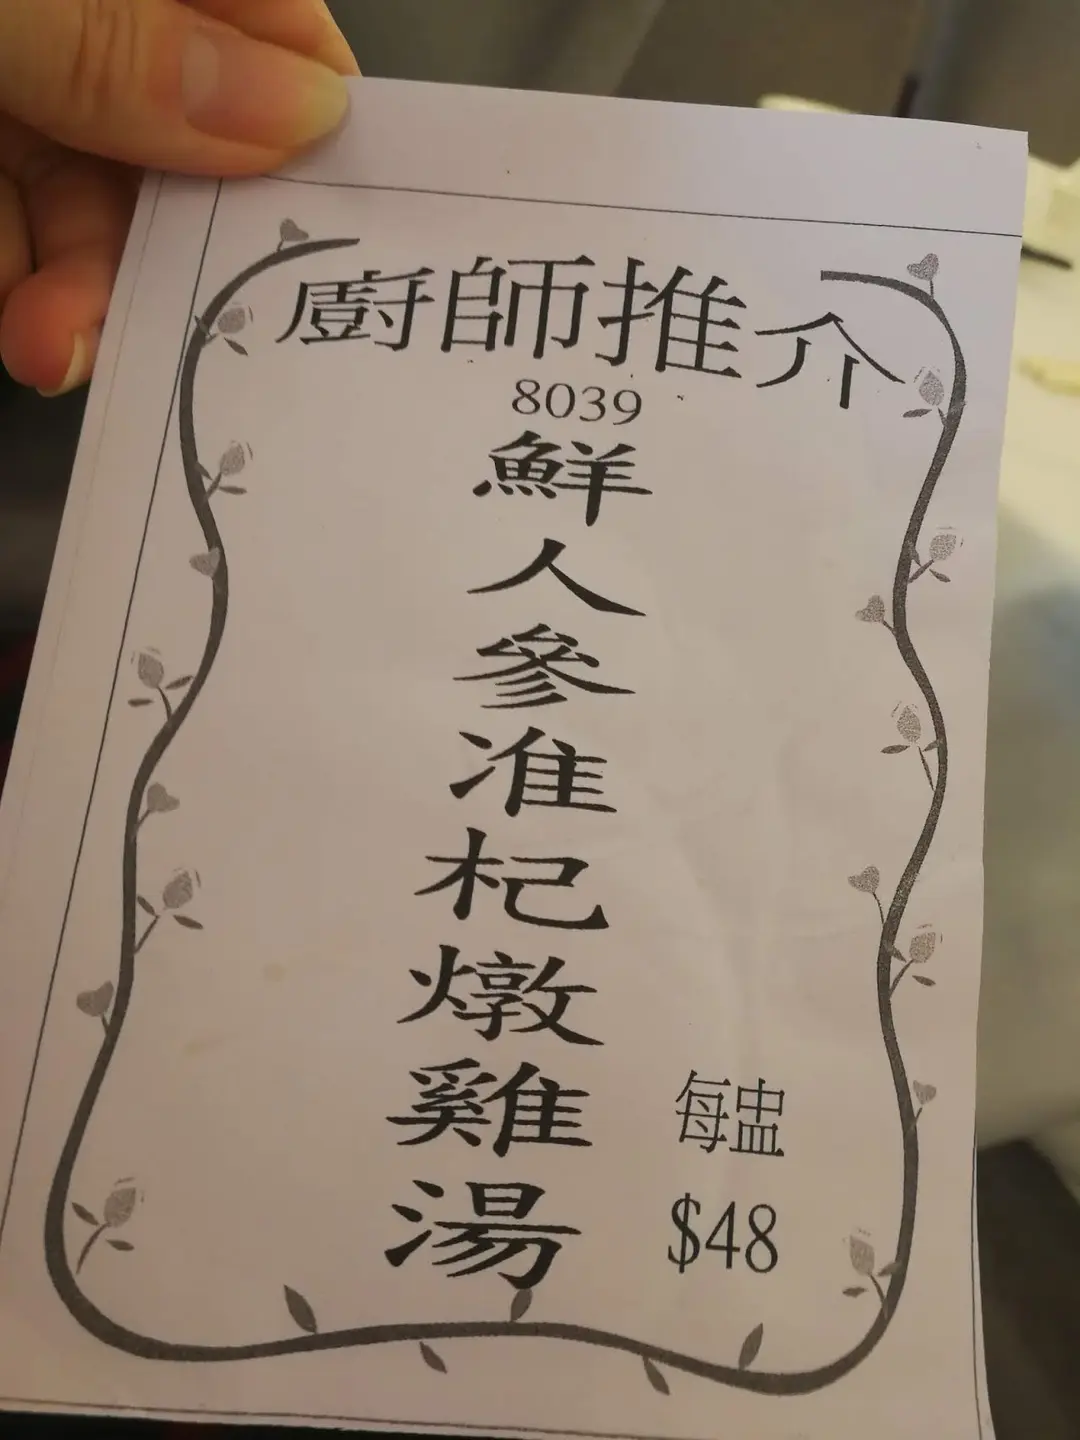 廚師推介
8039
鮮人參准杞燉雞湯
每盅
$48